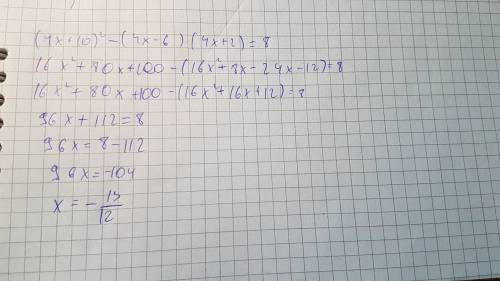 (4x+10)²-(4x-6)(4x+2)=8
16x²+80x+100-(16x²+8x-24x-12)=8
16x²+80x+100-(16x²+16x+12)=8
96x+112=8
96x=8-112
96x=-104
x=-13/12